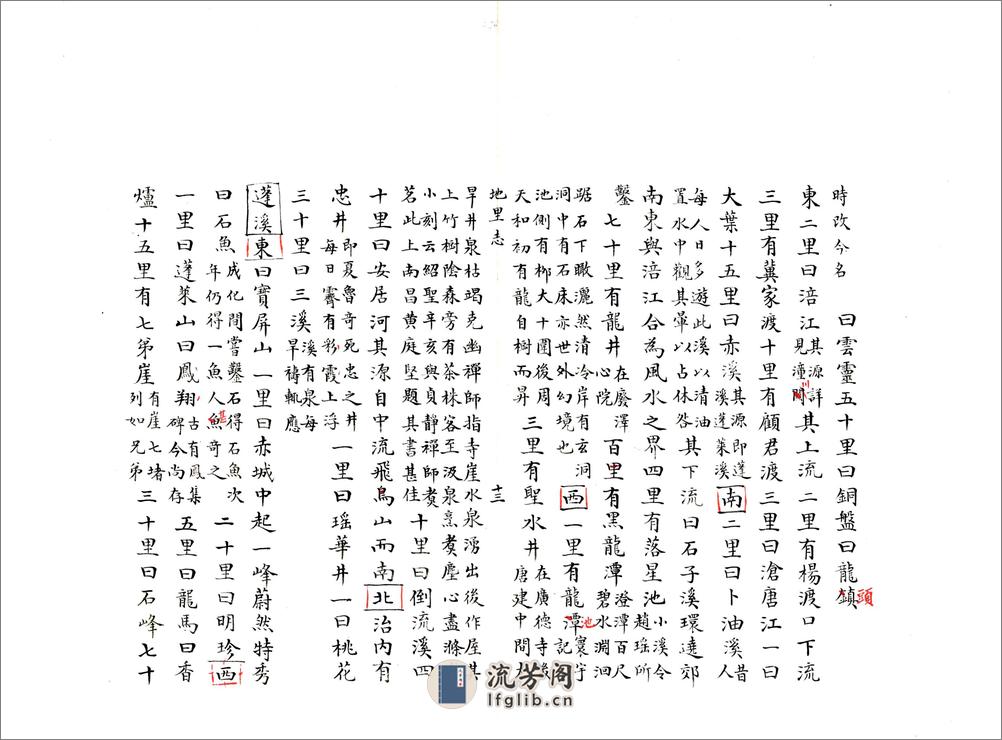 時改今名　曰雲靈五十里曰銅盤曰龍鎮頭
東二里曰涪江其源詳見潼閬川其上流二里有楊渡口下流
三里有冀家渡十里有顧君渡三里曰滄唐江一曰
大葉十五里曰赤溪其源即蓬溪蓬萊溪南二里曰卜油溪昔人
每人日多遊此溪以清油置水中觀其暈以占休咎其下流曰石子溪環達郊
南東與涪江合為風水之界四里有落星池小溪令趙瑶所
鑿七十里有龍井在麼澤心院百里有黑龍潭澄潭百尺碧水淵洄
踞石下瞰灑然清冷岸有玄洞洞中有石床亦世外幻境也西一里有龍潭池寰宇記
池側有柳大十圍後周天和初有龍自樹而昇三里有聖水井在廣德寺後唐建中間大
地里志　十三
旱井泉枯竭克幽禪師指寺崖水泉湧出後作屋其上竹樹陰森旁有茶株客至汲泉烹煑塵心盡滌其
小刻云紹聖辛亥與貞靜禪師煑茗此上南昌黄庭堅題其書甚佳十里曰倒流溪四
十里曰安居河其源自中流飛鳥山而南北治內有
忠井即夏魯奇死忠之井每日霽有彩霞上浮一里曰瑶華井一曰桃花
三十里曰三溪溪有泉每旱禱輒應
蓬溪東曰寶屏山一里曰赤城中起一峰蔚然特秀
曰石魚成化間嘗鑿石得石魚次年仍得一魚人魚甚奇之二十里曰明珍西
一里曰蓬萊山曰鳳翔古有鳳集碑今尚存五里曰龍馬曰香
爐十五里有七弟崖有崖七堵列如兄弟三十里曰石峰七十
流芳阁
lfglib.cn